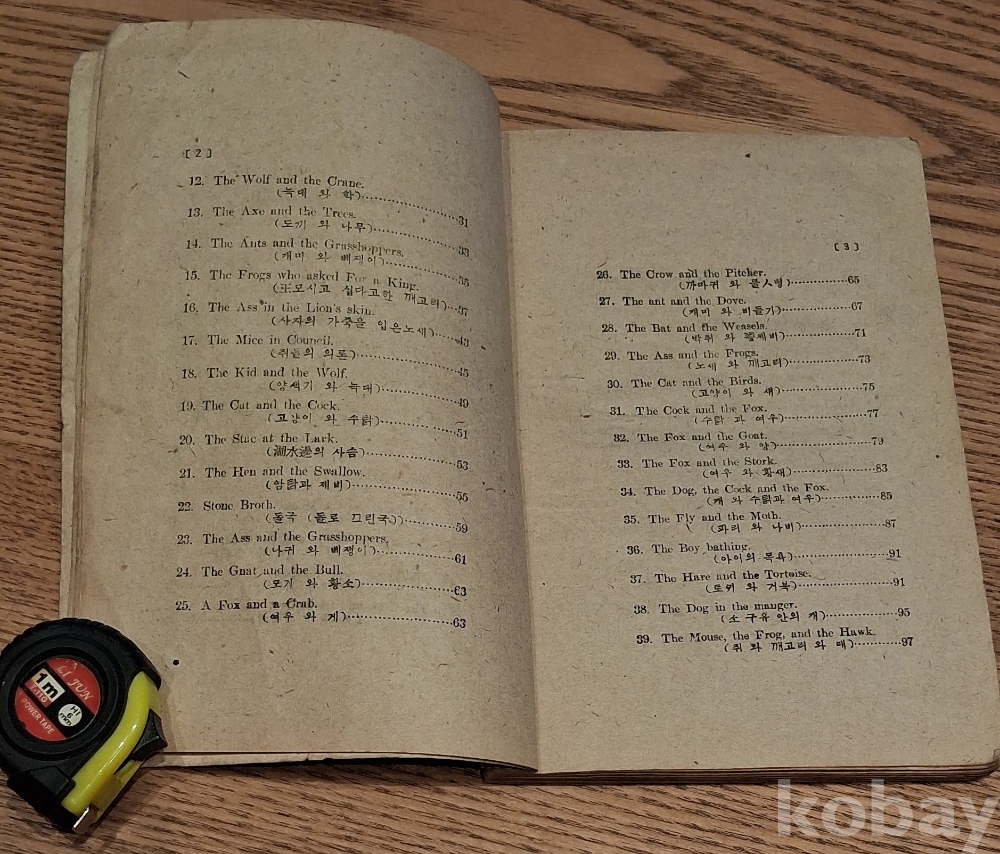 [2]
12. The Wolf and the Crane.
(늑대 와 학)......31
13. The Axe and the Trees.
(도끼 와 나무)......33
14. The Ants and the Grasshoppers.
(개미 와 베쨍이)......35
15. The Frogs who asked For a King.
(王모시고 십다고한 깨고리)...37
16. The Ass in the Lion's skin.
(사자의 가죽을 입은노새)......43
17. The Mice in Council.
(쥐들의 의론)......45
18. The Kid and the Wolf.
(양색기 와 늑대)......49
19. The Cat and the Cock.
(고양이 와 수탉)......51
20. The Stac at the Lark.
(湖水邊의 사슴)......53
21. The Hen and the Swallow.
(암탉과 제비)......55
22. Stone Broth.
(돌국 (돌로 끄린국))......59
23. The Ass and the Grasshoppers.
(나귀 와 베쨍이)......61
24. The Gnat and the Bull.
(모기 와 황소)......63
25. A Fox and a Crab.
(여우 와 게)......63
[3]
26. The Crow and the Pitcher.
(까마귀 와 물人병)......65
27. The ant and the Dove.
(개미 와 비둘기)......67
28. The Bat and the Weasels.
(박쥐 와)......71
29. The Ass and the Frogs.
(노새 와 깨고리)......73
30. The Cat and the Birds.
(고양이 와 새)......75
31. The Cock and the Fox.
(수탉 과 여우)......77
32. The Fox and the Goat.
(여우 와 양)......79
33. The Fox and the Stork.
(여우 와 황새)......83
34. The Dog, the Cock and the Fox.
(개 와 수탉과 여우)......85
35. The Fly and the Moth.
(파리 와 나비)......87
36. The Boy bathing.
(아이의 목욕)......91
37. The Hare and the Tortoise.
(토끼 와 거북)......91
38. The Dog in the manger.
(소 구유 안의 개)......95
39. The Mouse, the Frog, and the Hawk.
(쥐 와 깨고리 와 매)......97
LI JUN
1m
POWER TAPE
Hi
6
mm
kobay